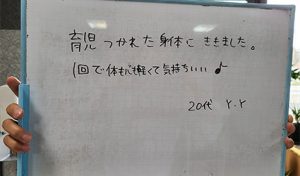 育児 つかれた身体に ききました。
1回で体もバも軽くて気持ちいい♪
20代 Y.Y